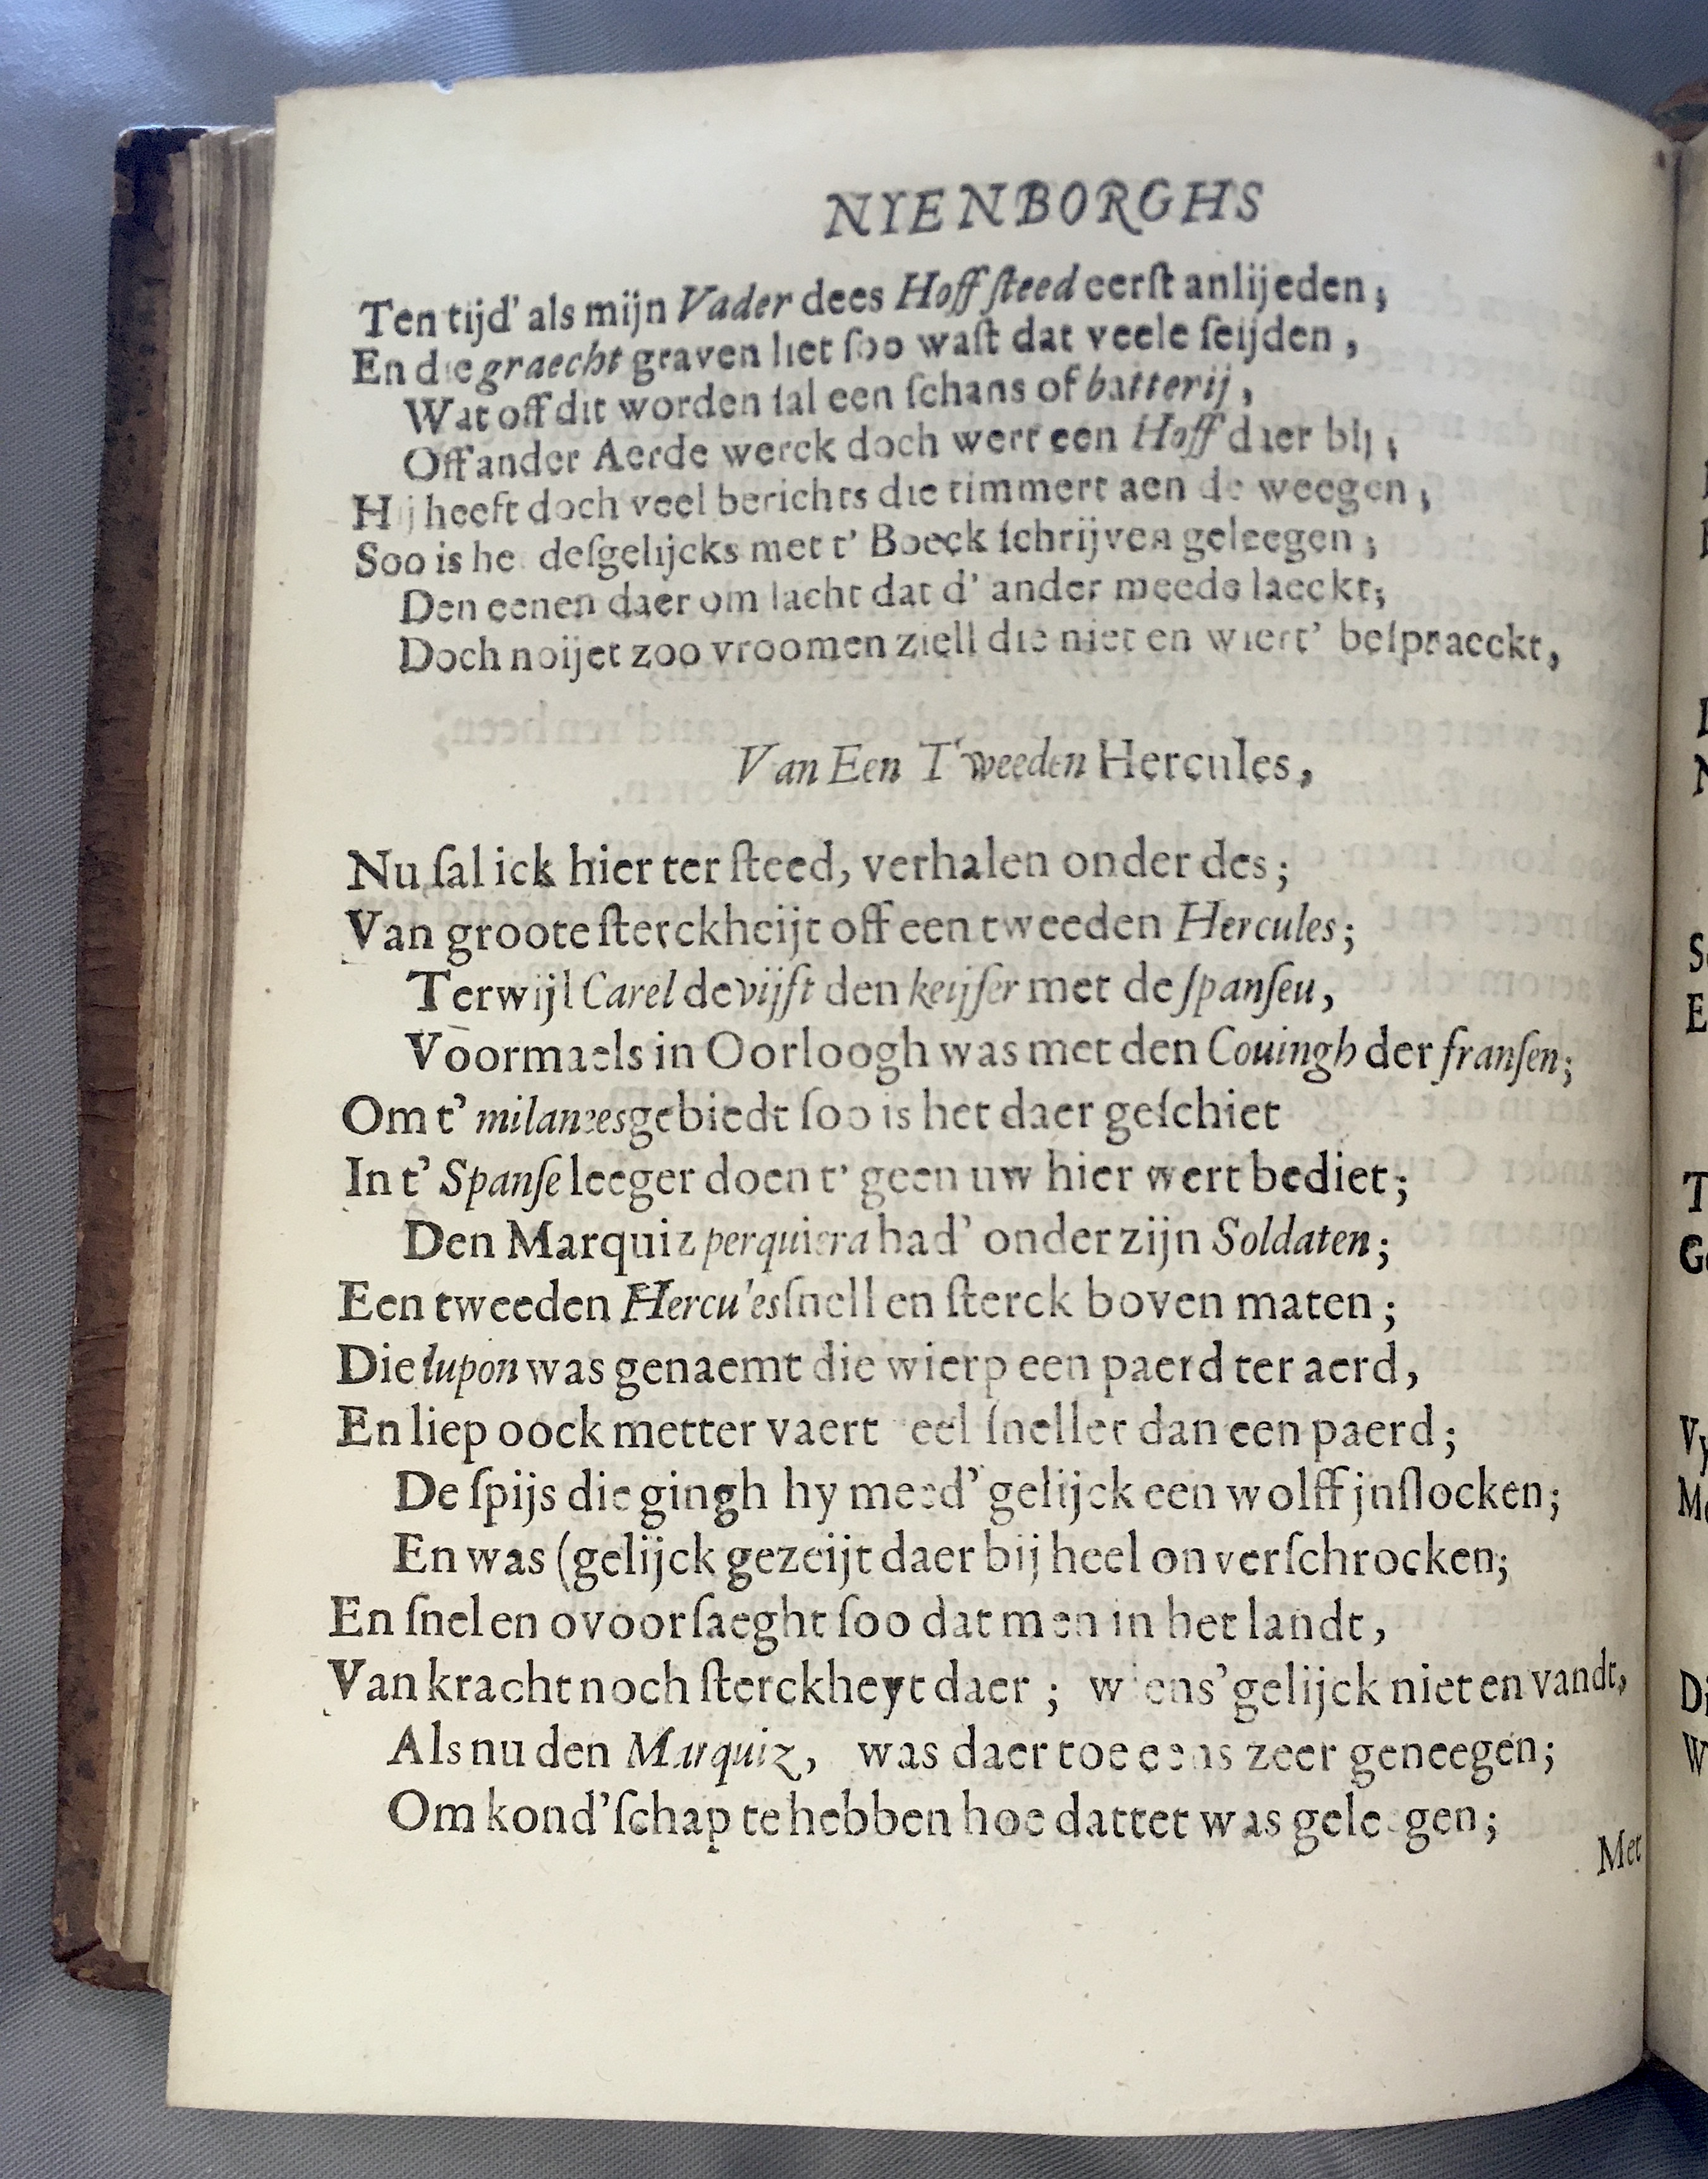 NYENBORGHS
Ten tijd' als mijn Vader dees Hoffſteed eerſt anlijeden;
En die graecht graven liet ſoo waſt dat veele ſeijden,
Wat off dit worden ſal een ſchans of batterij,
Off ander Aerde werck doch wert een Hoff daer bij;
Hij heeft doch veel berichts die timmert aen de weegen;
Soo is he deſgelijcks met t' Boeck ſchrijven geleegen;
Den eenen daer om lacht dat d' ander meede laeckt;
Doch noijet zoo vroomen ziell die niet en wiert' beſpraeckt,
Van Een Tweeden Hercules,
Nu ſal ick hier ter ſteed, verhalen onder des;
Van groote ſterckheijt off een tweeden Hercules;
Terwijl Carel de vijft den keijſer met de ſpanſeu,
Voormaels in Oorloogh was met den Couingh der franſen;
Om t' milanees gebiedt ſoo is het daer geſchiet
In t' Spanſe leeger doen t' geen uw hier wert bediet;
Den Marquiz perquiera had' onder zijn Soldaten;
Een tweeden Hercu'es ſnell en ſterck boven maten;
Die lupon was genaemt die wierp een paerd ter aerd,
En liep oock metter vaert eel ſneller dan een paerd;
De ſpijs die gingh hy meed' gelijck een wolff jnſlocken;
En was (gelijck gezeijt daer bij heel onverſchrocken;
En ſnel en ovoorſaeght ſoo dat men in het landt,
Van kracht noch ſterckheyt daer; wiens' gelijck niet en vandt,
Als nu den Marquiz, was daer toe eens zeer geneegen;
Om kond'ſchap te hebben hoe dattet was geleegen;
Met